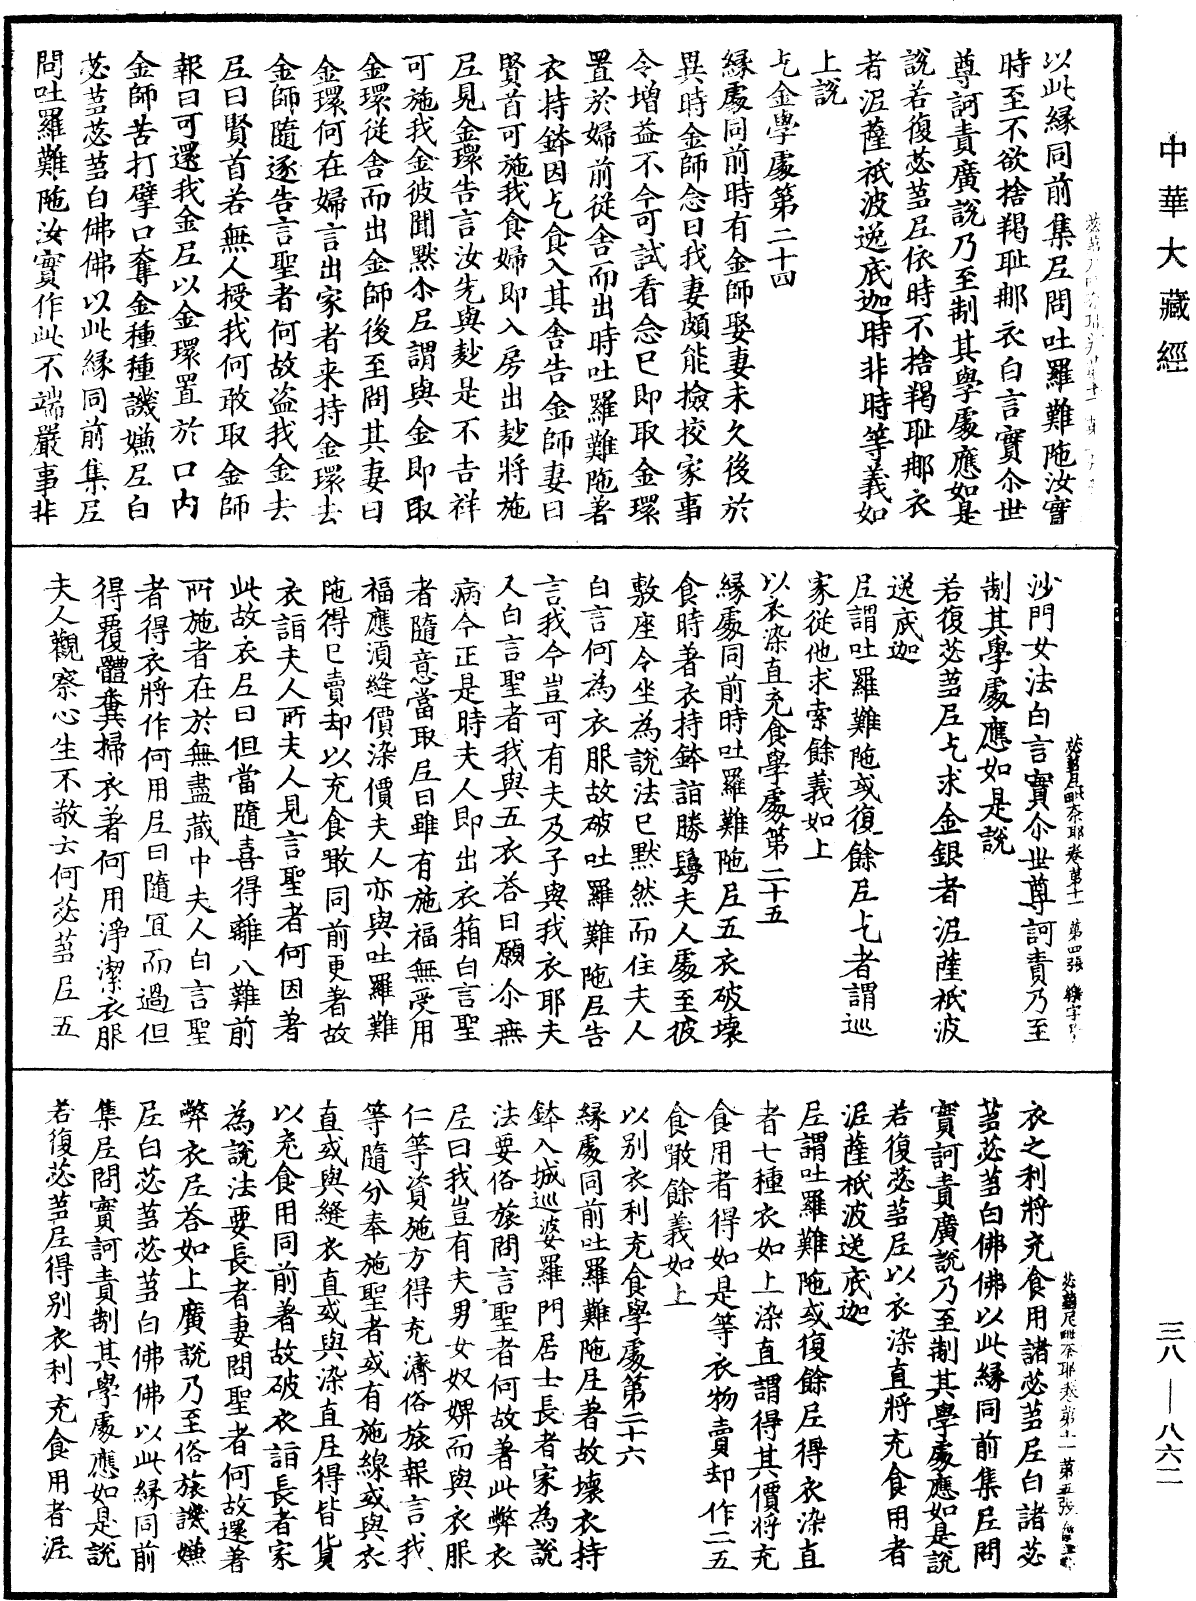 中華大藏經
以此緣同前集尼問吐羅難陁汝實
時至不欲捨羯耻那衣白言實尒世
尊訶責廣說乃至制其學處應如是
說若復苾芻尼依時不捨羯耻那衣
者泥薩祇波逸底迦時非時等義如
上說
乞金學處第二十四
緣處同前時有金師娶妻未久後於
異時金師念曰我妻頗能撿挍家事
令增益不今可試看念已即取金環
置於婦前從舍而出時吐羅難陁著
衣持鉢因乞食入其舍告金師妻曰
賢首可施我食婦即入房出麨將施
尼見金環告言汝先與麨是不吉祥
可施我金彼聞默尒尼謂與金即取
金環從舍而出金師後至問其妻曰
金環何在婦言出家者来持金環去
金師隨逐告言聖者何故盜我金去
尼曰賢首若無人授我何敢取金師
報曰可還我金尼以金環置於口内
金師苦打擘口奪金種種譏嫌尼白
苾芻苾芻白佛佛以此緣同前集尼
問吐羅難陁汝實作此不端嚴事非
苾芻尼毗奈耶卷第十一 第四張
沙門女法白言實尒世尊訶責乃至
制其學處應如是說
若復苾芻尼乞求金銀者泥薩祇波
逸底迦
尼謂吐羅難陁或復餘尼乞者謂巡
家從他求索餘義如上
以衣染直充食學處第二十五
緣處同前時吐羅難陁尼五衣破壞
食時著衣持鉢詣勝鬘夫人處至彼
敷座令坐為說法已默然而住夫人
白言何為衣服故破吐羅難陁尼告
言我今豈可有夫及子與我衣耶夫
人白言聖者我與五衣荅曰願尒無
病今正是時夫人即出衣箱白言聖
者隨意當取尼曰雖有施福無受用
福應須縫價染價夫人亦與吐羅難
陁得已賣却以充食噉同前更著故
衣詣夫人所夫人見言聖者何因著
此故衣尼曰但當隨喜得離八難前
所施者在於無盡藏中夫人白言聖
者得衣將作何用尼曰隨冝而過但
得覆體糞掃衣著何用淨潔衣服
夫人觀察心生不敬云何苾芻尼五
苾芻尼毗奈耶卷第十一 第五張
衣之利將充食用諸苾芻尼白諸苾
芻苾芻白佛佛以此緣同前集尼問
實訶責廣說乃至制其學處應如是說
若復苾芻尼以衣染直將充食用者
泥薩祇波逸底迦
尼謂吐羅難陁或復餘尼得衣染直
者七種衣如上染直謂得其價將充
食用者得如是等衣物賣却作二五
食噉餘義如上
以别衣利充食學處第二十六
緣處同前吐羅難陁尼著故壞衣持
鉢入城巡婆羅門居士長者家為說
法要俗旅問言聖者何故著此弊衣
尼曰我豈有夫男女奴婢而與衣服
仁等資施方得充濟俗旅報言我
等隨分奉施聖者或有施線或與衣
直或與縫衣直或與染直尼得皆貨
以充食用同前著故破衣詣長者家
為說法要長者妻問聖者何故還著
弊衣尼荅如上廣說乃至俗旅譏嫌
尼白苾芻苾芻白佛佛以此緣同前
集尼問實訶責制其學處應如是說
若復苾芻尼得别衣利充食用者泥
三八——八六二